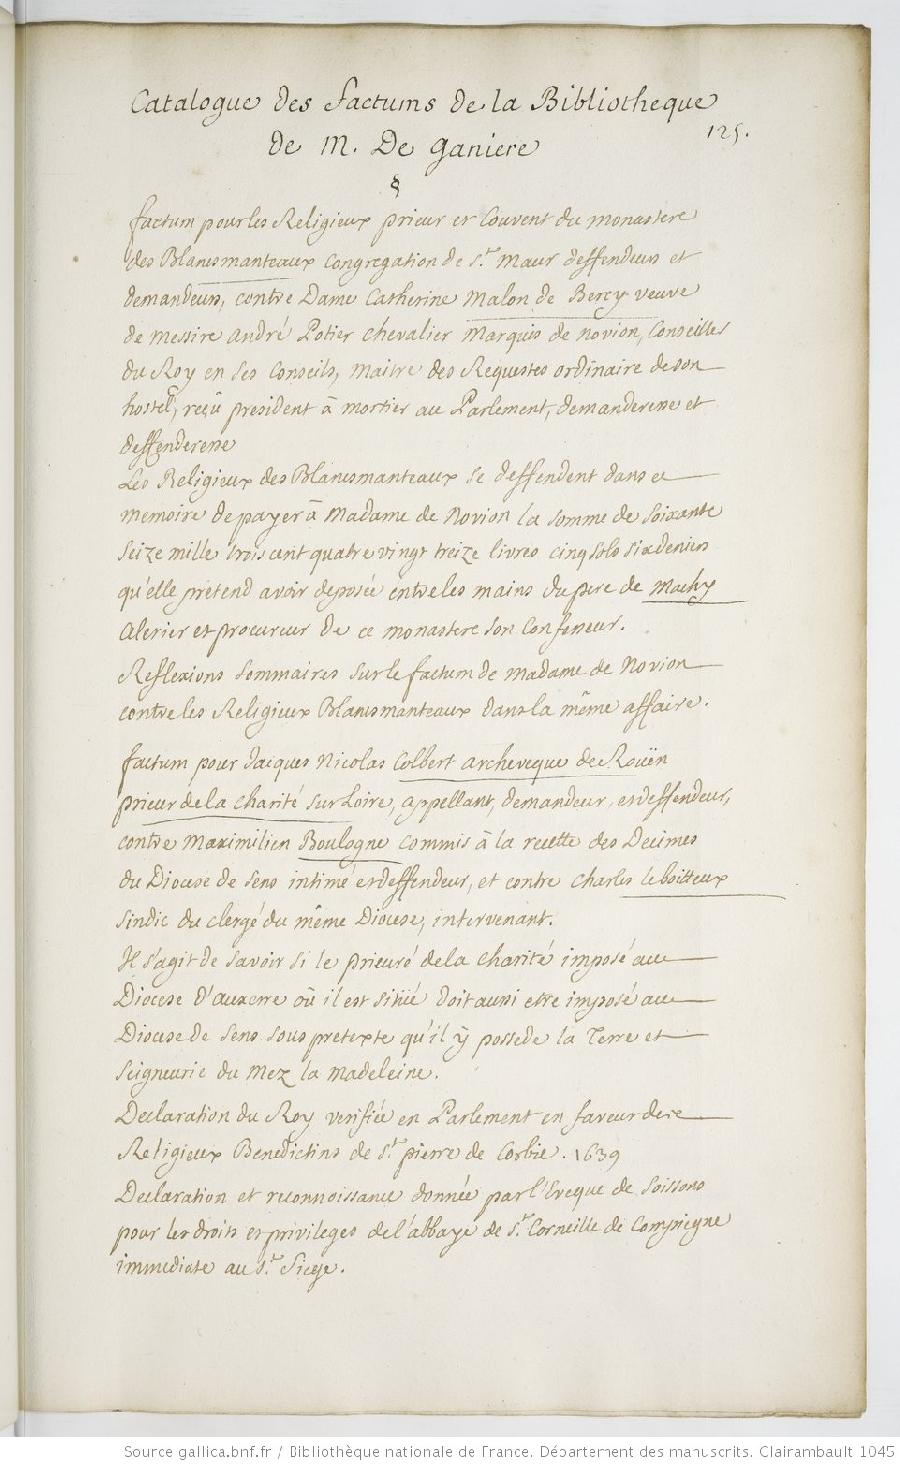 Catalogue des factums de la Bibliotheque
de M. De Ganiere
125.
factum pour les Religieux prieur et Couvent du monastere
des Blancsmanteaux congregation de St. Maur deffendeurs et
demandeurs, contre Dame Catherine Malon de Bercy veuve
de Messire André Potier chevalier Marquis de Novion, Conseiller
du Roy en ses Conseils, Maitre des Requestes ordinaire de son
hostel, reçû president à mortier au Parlement, demanderesse et
deffenderesse
Les Religieux des Blancsmanteaux se deffendent dans ce
memoire de payer à Madame de Novion la somme de soixante
seize mille trois cent quatre vingt treize livres cinq sols six deniers
qu'elle prétend avoir deposée entre les mains du pere de
Celerier et procureur de ce monastere son Confesseur.
Reflexions sommaires sur le factum de Madame de Novion
contre les Religieux Blancsmanteaux dans la même affaire.
factum pour Jacques Nicolas Colbert archeveque de Roüen
prieur de la Charité sur Loire, appellant, demandeur, et deffendeur,
contre Maximilien Boulogne commis à la recette des Decimes
du Diocese de Sens intimé et deffendeur, et contre Charles le boitteux
sindic du clergé du même Diocese, intervenant.
Il s'agit de savoir si le prieuré de la Charité imposé au
Diocese d'auxerre où il est sitüé doit aussi estre imposé au
Diocese de Sens sous pretexte qu'il ÿ possede la Terre et
Seigneurie du Mez la Madeleine.
Declaration du Roy verifiée en Parlement en faveur des
Religieux Benedictins de St. pierre de Corbie. 1639
Declaration et reconnoissance donnée par l'Eveque de Soissons
pour les droits et privileges de l'abbaye de St. Corneille de Compiegne
immediate au St. Siege.
Source gallica.bnf.fr / Bibliothèque nationale de France. Département des manuscrits. Clairambault 1045